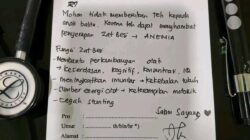 Mohon tidak memberikan Teh kepada
anak balita karena teh dapat menghambat
penyerapan Zat BESI → ANEMIA
Fungsi Zat BESI
- Membantu perkembangan otak
Kecerdasan, kognitif, konsentrasi, IQ
- Meningkatkan imunitas → kekebalan tubuh
- Sumber energi otot → keterampilan motorik
- Cegah stunting
Salam Sayang
Pro :
Umur : th/bln/hr *)